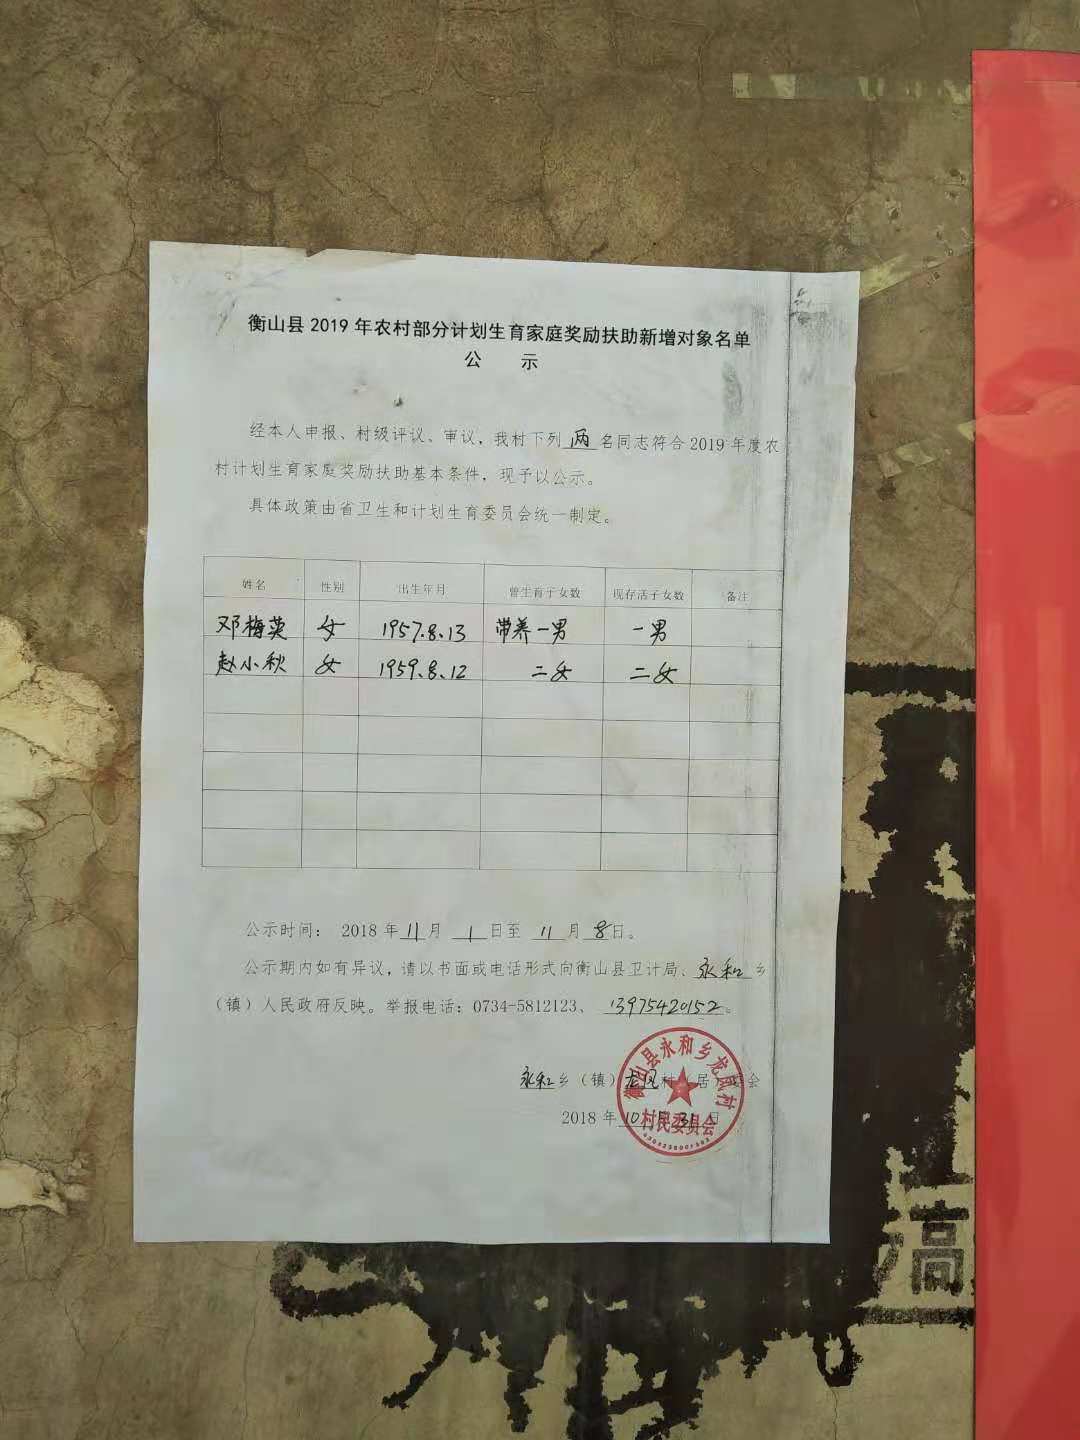 衡山县2019年农村部分计划生育家庭奖励扶助新增对象名单
公 示
经本人申报、村级评议、审议，我村下列 两 名同志符合2019年度农
村计划生育家庭奖励扶助基本条件，现予以公示。
具体政策由省卫生和计划生育委员会统一制定。
姓名 性别 出生年月 曾生育子女数 现存活子女数 备注
邓梅英 女 1957.8.13 带养一男 一男
赵小秋 女 1959.8.12 二女 二女
公示时间： 2018年 11 月 1 日至 11 月 8 日。
公示期内如有异议，请以书面或电话形式向衡山县卫计局、永和乡
（镇）人民政府反映。举报电话：0734-5812123、 13975420152。
永和乡（镇）龙凤村（居）委会
2018年10月31日
衡山县永和乡龙凤村
村民委员会
高